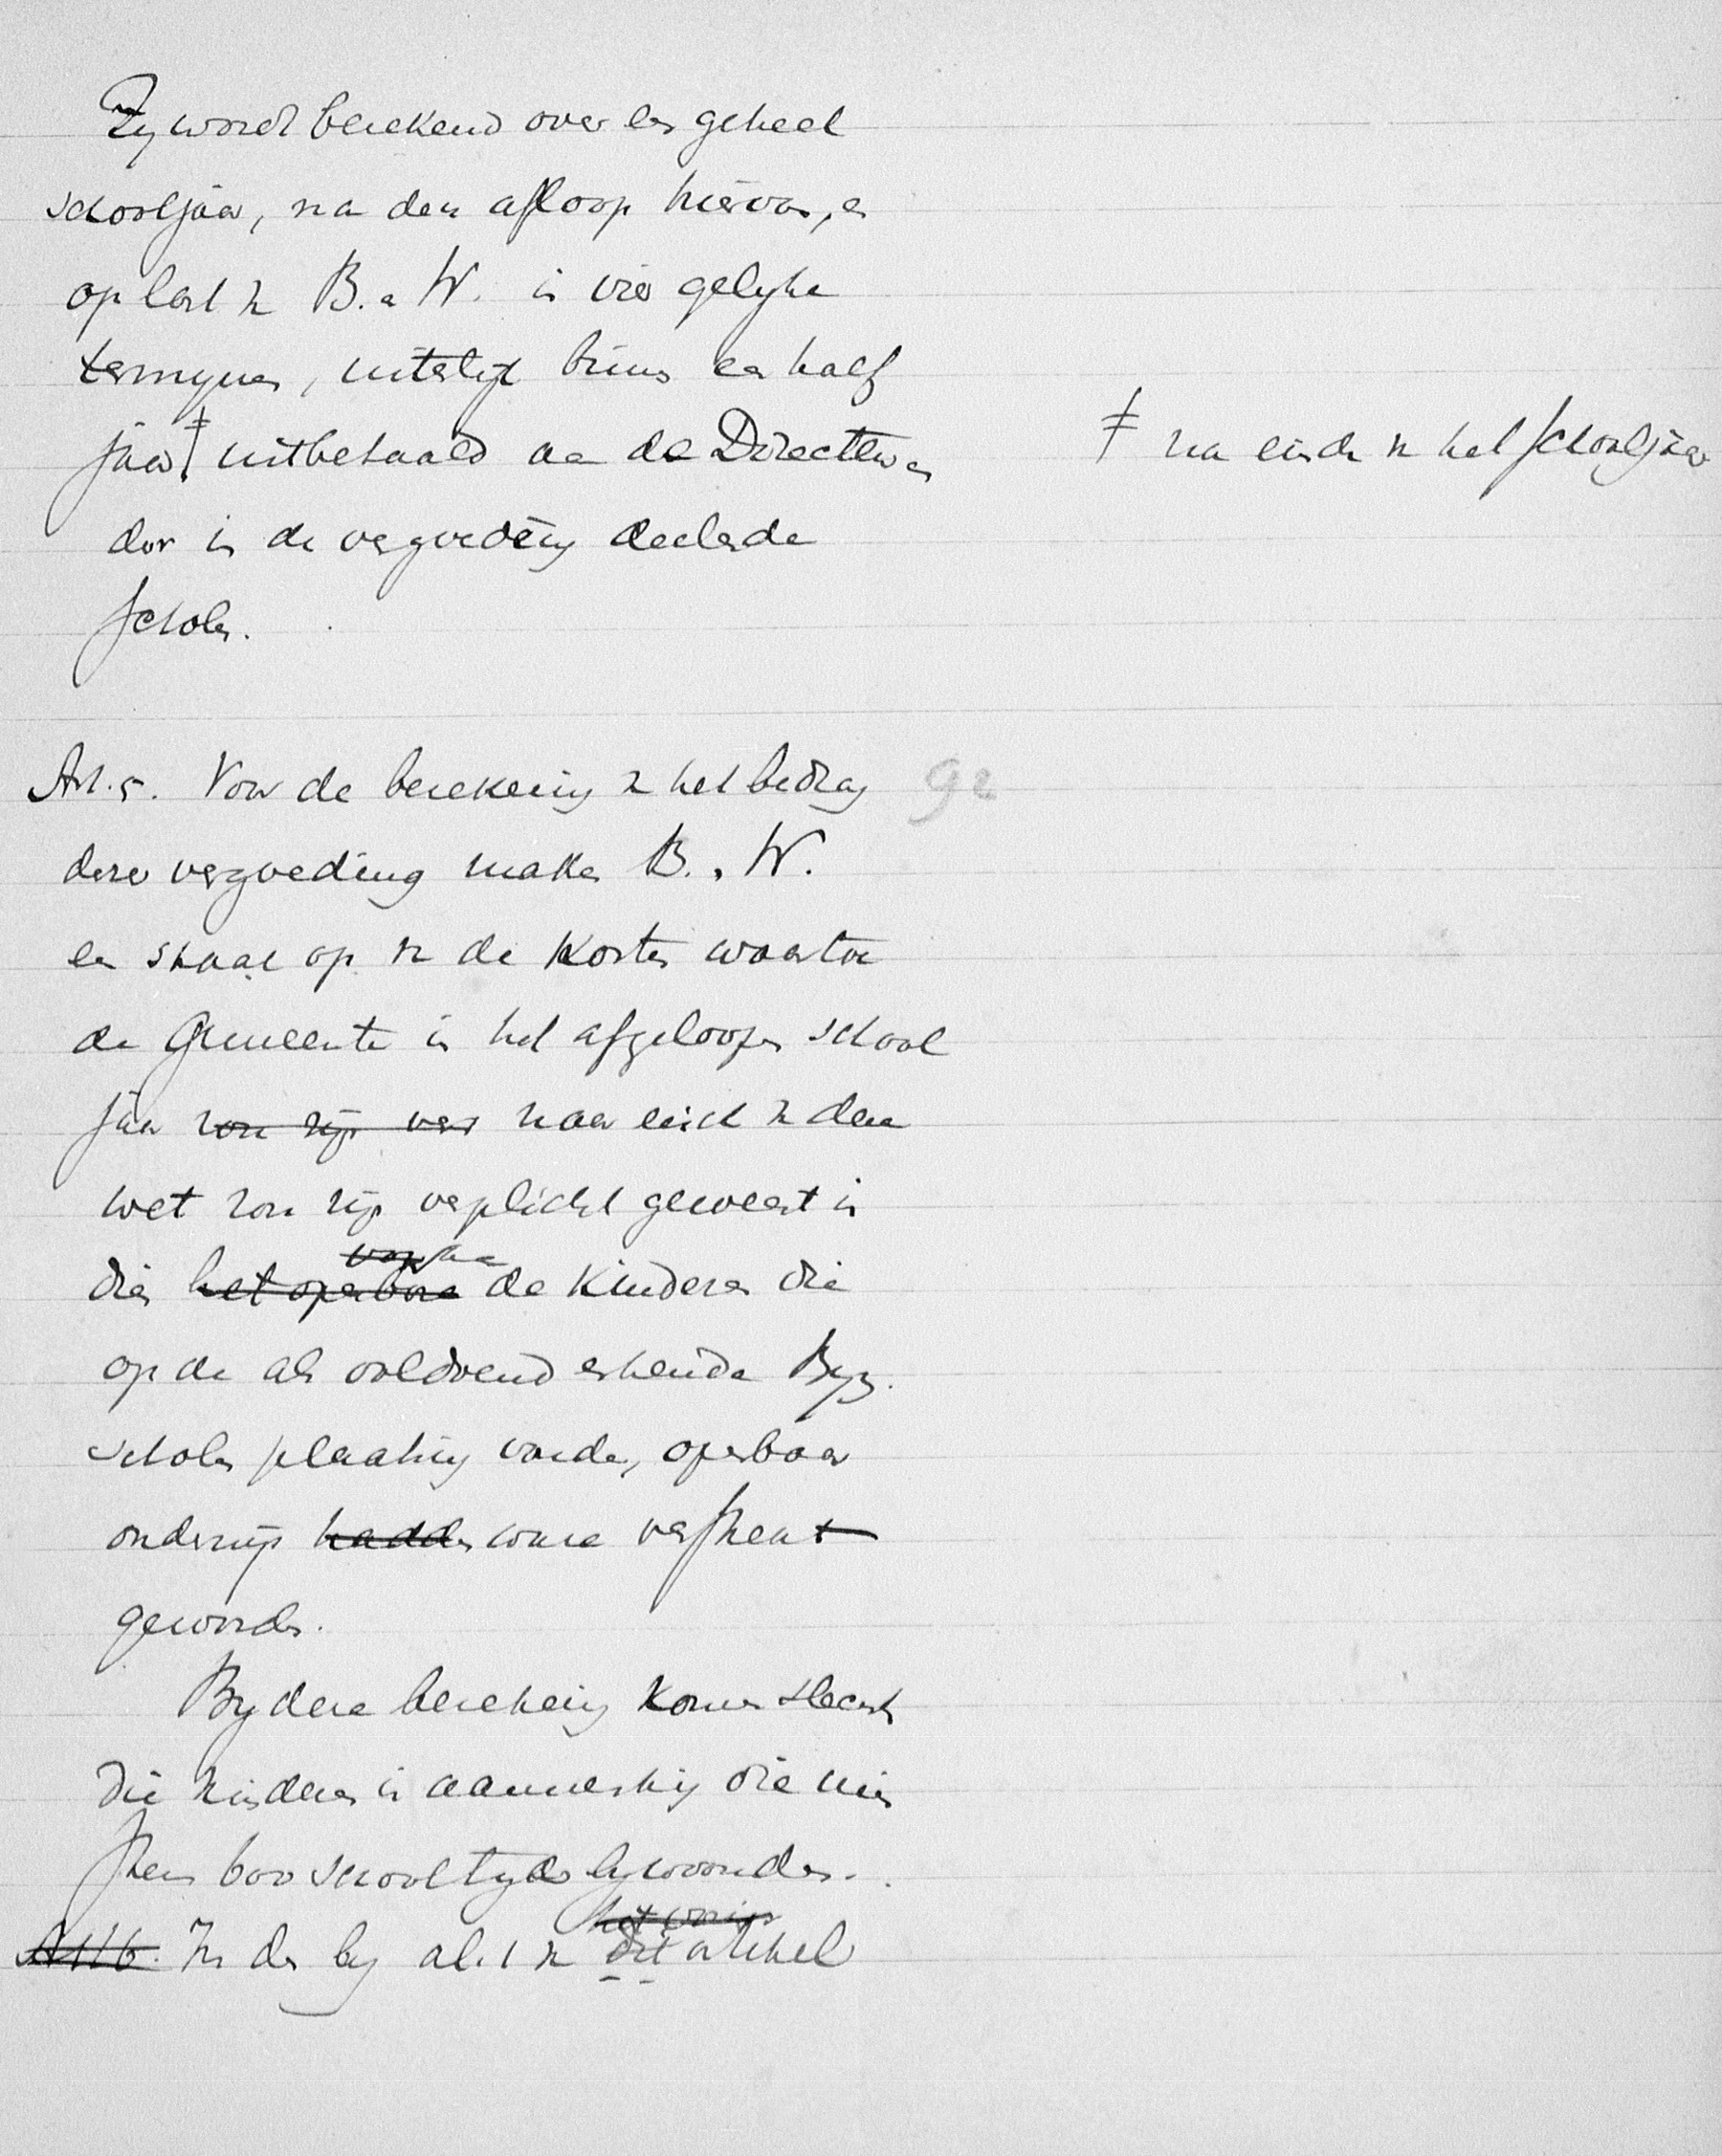 Zy wordt berekend over een geheel
schooljaar, na den afloop hiervan, en
op last v B. e W. in vier gelyke
termynen, uiterlijk binns een half
jaar ‡ uitbetaald aan de Directeuren
‡ na einde v het schooljaar
der in de vergoeding deelende
scholen.
Art. 5. Voor de berekening v het bedrag
dezer vergoeding maken B. e W.
een staat op v de kosten waartoe
de Gemeente in het afgeloopen school
jaar zou zijn ver naar eisch v deze
wet zou zijn verplicht geweest indien
het openbare de kinderen die
op de als voldoend erkende Byz.
scholen plaatsing vonden, openbaar
onderwijs hadden waren verstrekt
geworden.
By deze berekening komen slechts
die kinderen in aanmerking die min
stens schooltyden bywoonden.
het vorig
Art 6. In de by al. 1 v dit artikel